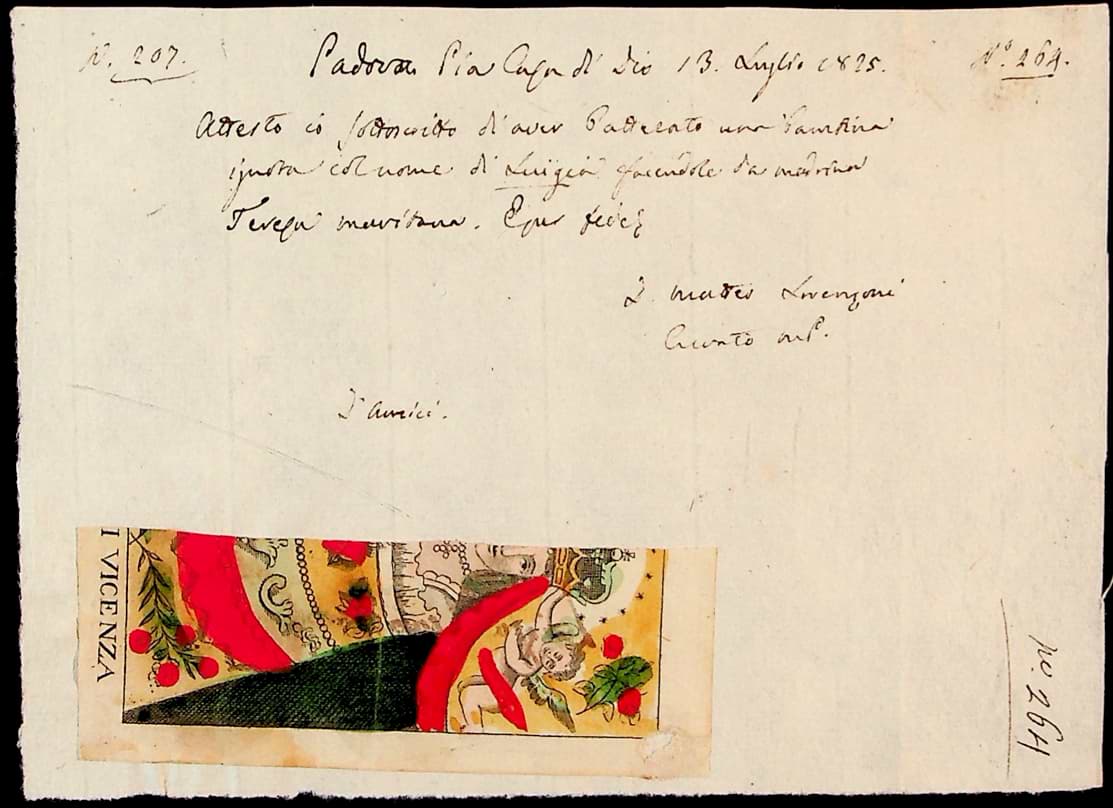 N. 207.
Padova Pia Casa di Dio 13. Luglio 1825.
N.º 264.
Attesto io sottoscritto di aver battezato una bambina
ignota col nome di Luigia facendole da madrina
Teresa maritana. E per fede
D. Matteo Lorenzoni
Curato mP.
D'Amici.
I VICENZA
N.º 264